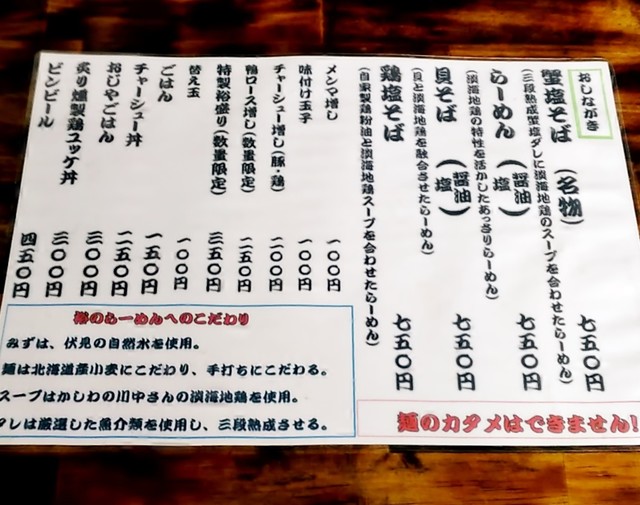 おしながき
蟹塩そば (名物) 七五〇円
(三段熟成蟹塩ダレに淡海地鶏のスープを合わせたらーめん)
らーめん (醤油・塩) 七五〇円
(淡海地鶏の特性を活かしたあっさりらーめん)
貝そば (醤油・塩) 七五〇円
(貝と淡海地鶏を融合させたらーめん)
鶏塩そば 七五〇円
(自家製鶏粉油と淡海地鶏スープを合わせたらーめん)
メンマ増し 一〇〇円
味付け玉子 一〇〇円
チャーシュー増し(豚・鶏) 二〇〇円
鴨ロース増し(数量限定) 二五〇円
特製裕盛り(数量限定) 三五〇円
替え玉 一〇〇円
ごはん 一五〇円
チャーシュー丼 二五〇円
おじやごはん 三〇〇円
炙り燻製鶏ユッケ丼 三〇〇円
ビンビール 四五〇円
裕のらーめんへのこだわり
みずは、伏見の自然水を使用。
麺は北海道産小麦にこだわり、手打ちにこだわる。
スープはかしわの川中さんの淡海地鶏を使用。
タレは厳選した魚介類を使用し、三段熟成させる。
麺のカタメはできません!